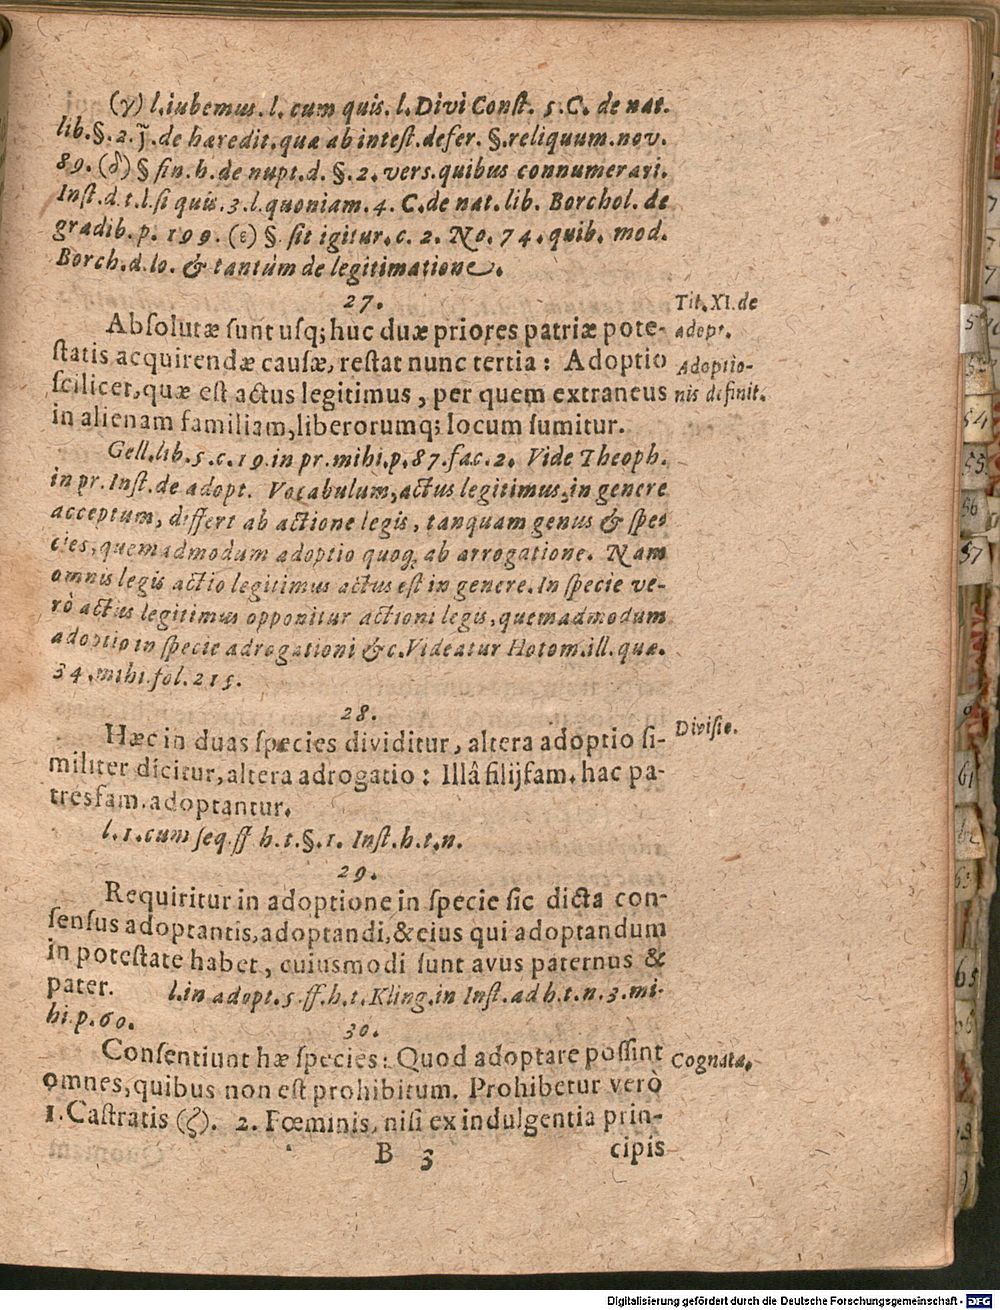 (γ) l.iubemus. l. cum quis. l. Divi Const. 5. C. de nat.
lib. §. 2. J. de hæredit. quæ ab intest. defer. §. reliquum. nov.
89. (δ) § fin. h. de nupt. d. §. 2. vers. quibus connumerari.
Inst. d. t. l. si quis. 3. l. quoniam. 4. C. de nat. lib. Borchol. de
gradib. p. 199. (ε) §. sit igitur. c. 2. No. 74. quib. mod.
Borch. d. lo. & tantùm de legitimatione.
27.
Tit. XI. de
adopt.
Absolutæ sunt usq; huc duæ priores patriæ pote-
statis acquirendæ causæ, restat nunc tertia: Adoptio
Adoptio-
nis definit.
scilicet, quæ est actus legitimus, per quem extraneus
in alienam familiam, liberorumq; locum sumitur.
Gell. lib. 5. c. 19. in pr. mihi. p. 87. fac. 2. Vide Theoph.
in pr. Inst. de adopt. Vocabulum, actus legitimus, in genere
acceptum, differt ab actione legis, tanquam genus & spe-
cies, quemadmodum adoptio quoq; ab arrogatione. Nam
omnis legis actio legitimus actus est in genere. In specie ve-
rò actus legitimus opponitur actioni legis, quemadmodum
adoptio in specie adrogationi &c. Videatur Hotom. ill. quæ.
34. mihi. fol. 215.
28.
Divisio.
Hæc in duas species dividitur, altera adoptio si-
militer dicitur, altera adrogatio: Illâ filijfam. hac pa-
tresfam. adoptantur.
l. 1. cum seq. ff h. t. §. 1. Inst. h. t. n.
29.
Requiritur in adoptione in specie sic dicta con-
sensus adoptantis, adoptandi, & eius qui adoptandum
in potestate habet, cuiusmodi sunt avus paternus &
pater. l. in adopt. 5. ff. h. t. Kling. in Inst. ad h. t. n. 3. mi-
hi. p. 60.
30.
Cognata.
Consentiunt hæ species: Quod adoptare possint
omnes, quibus non est prohibitum. Prohibetur verò
1. Castratis (ζ). 2. Fœminis, nisi ex indulgentia prin-
B 3 cipis
Digitalisierung gefördert durch die Deutsche Forschungsgemeinschaft - DFG